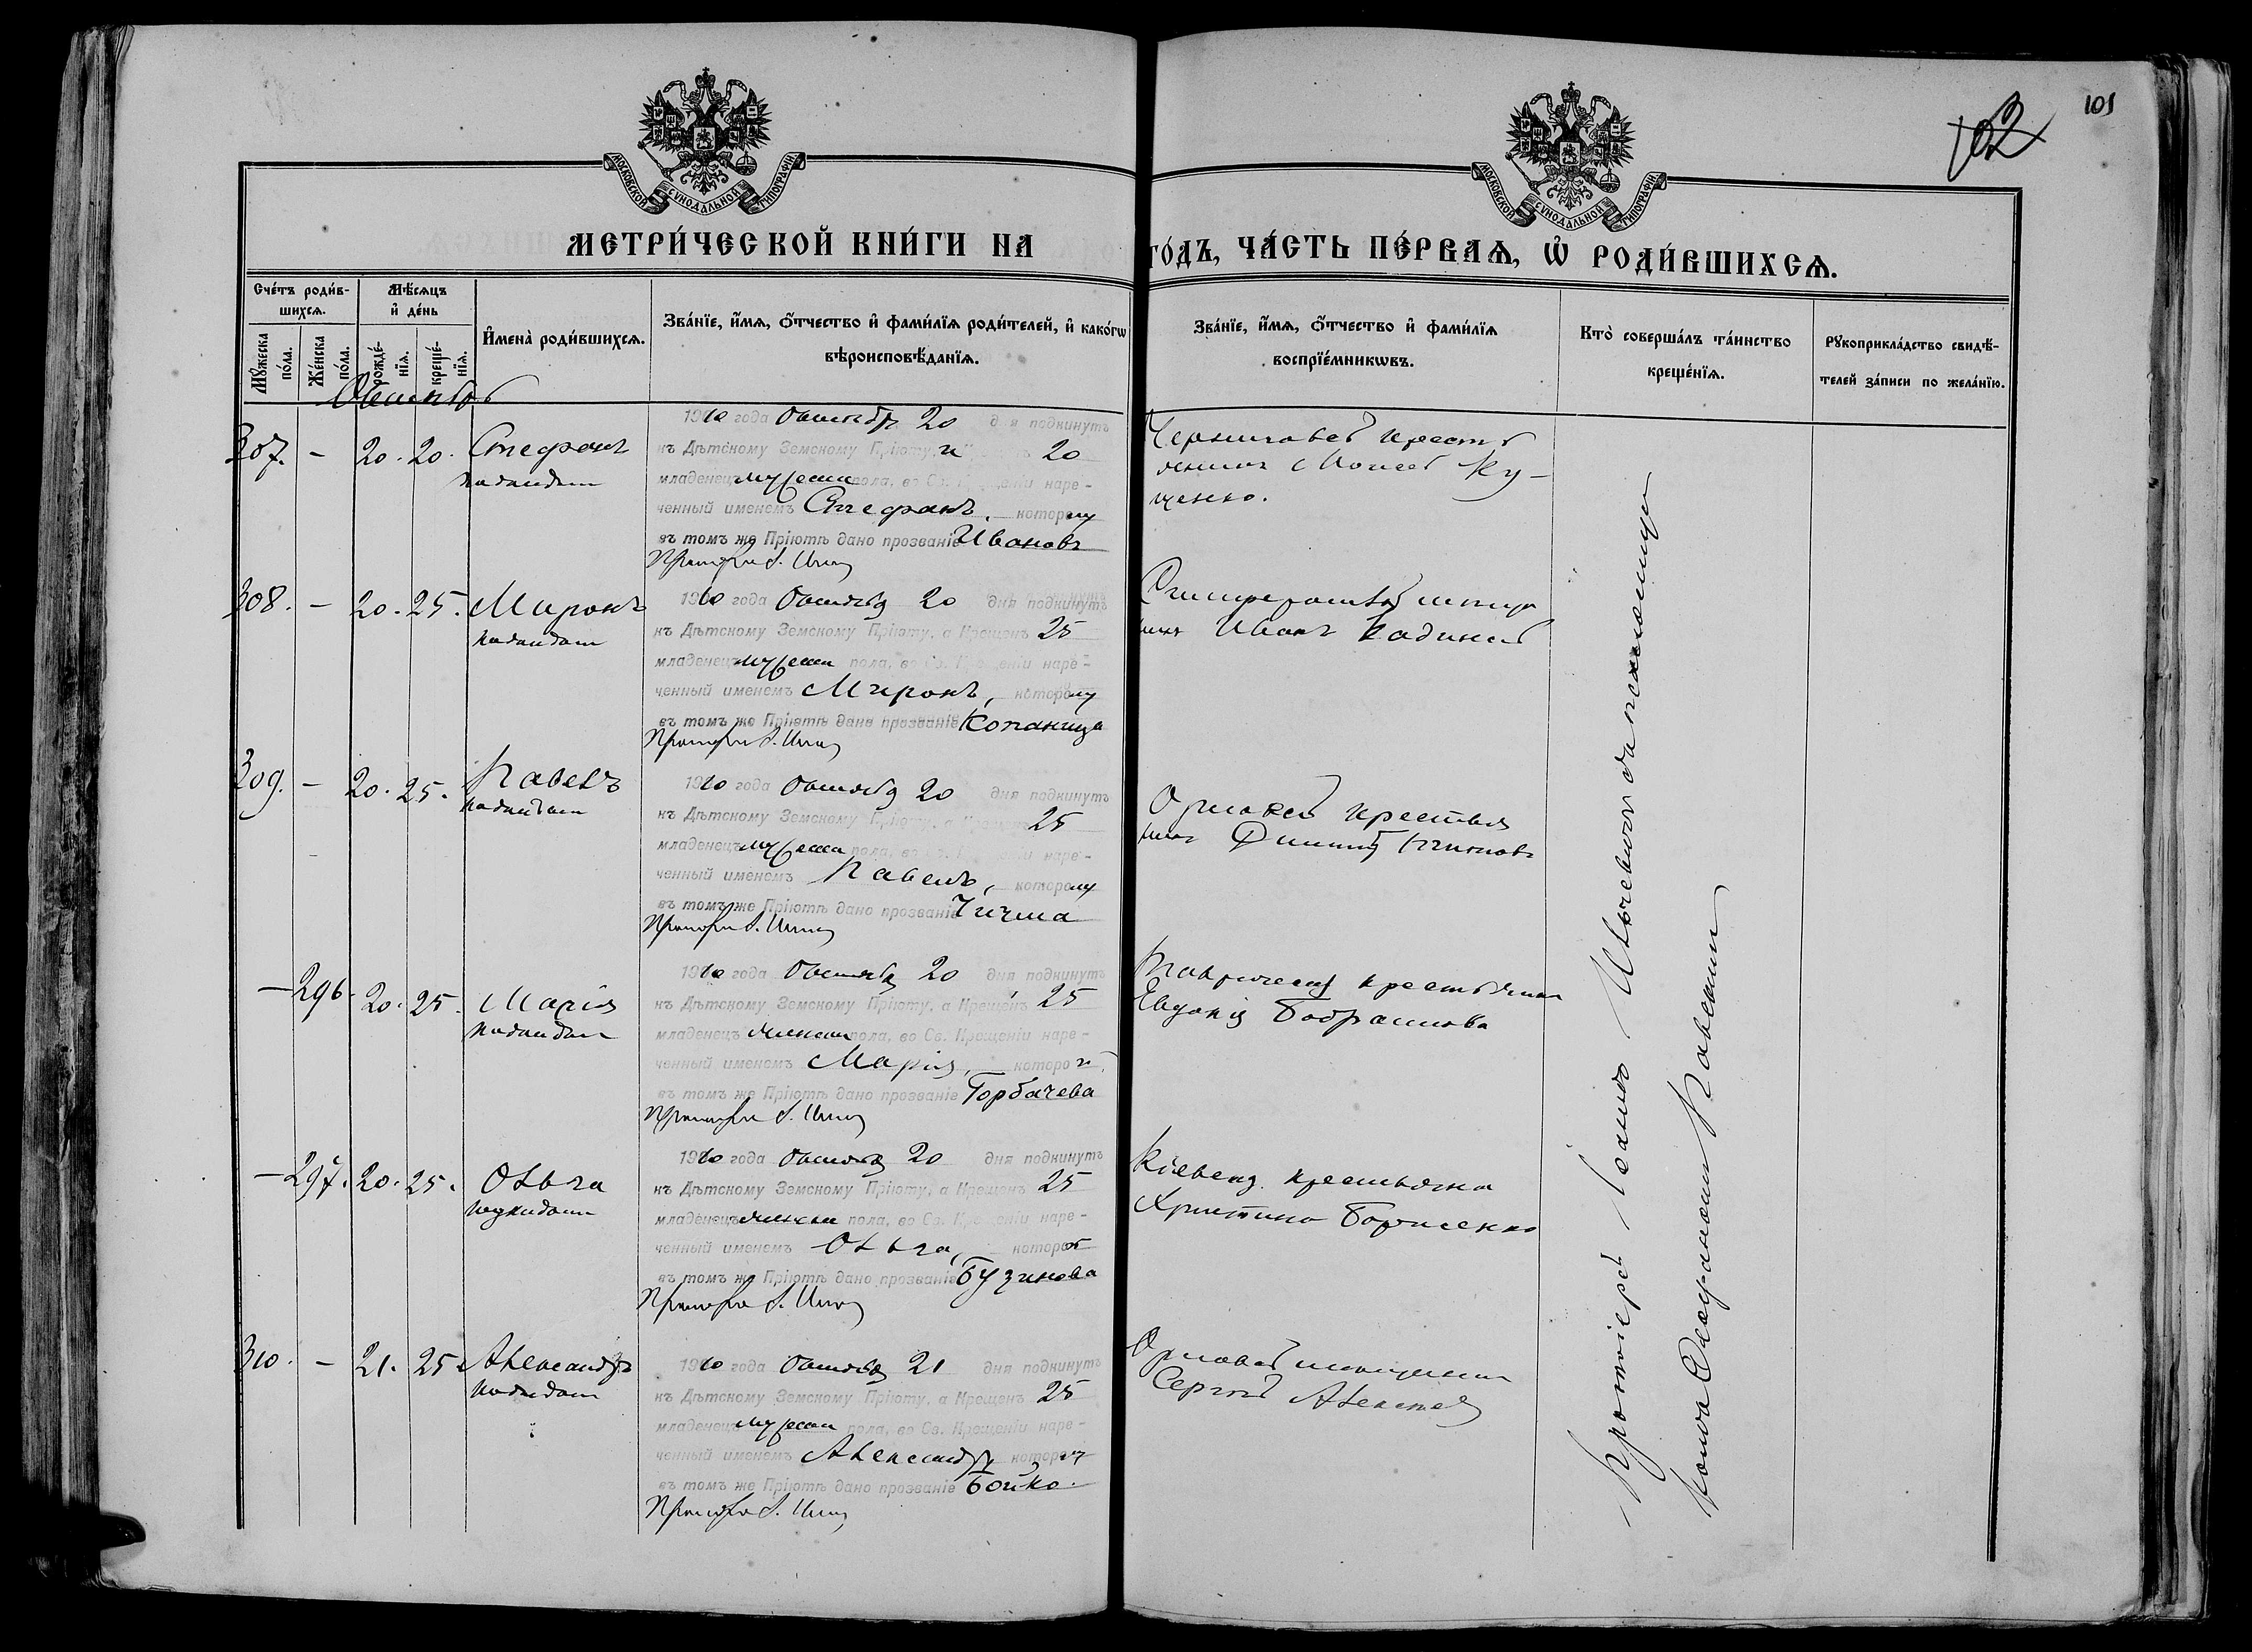 101
102
МОСКОВСКОЙ СѴНОДАЛЬНОЙ ТИПОГРАФІИ
МОСКОВСКОЙ СѴНОДАЛЬНОЙ ТИПОГРАФІИ
МЕТРИ́ЧЕСКОЙ КНИ́ГИ НА
ГО́ДЪ, ЧА́СТЬ ПЕ́РВАѦ, Ѡ҆ РОДИ́ВШИХСѦ.
Сче́тъ роди́в-
шихсѧ.
Мꙋ́жеска
по́ла.
Же́нска
по́ла.
Мѣ́сѧцъ
и҆ де́нь
рожде́-
нїѧ.
креще́-
нїѧ.
И҆мена̀ роди́вшихсѧ.
Зва́нїе, и҆́мѧ, ѻ҆́тчество и҆ фами́лїѧ роди́телей, и҆ како́гѡ
вѣроисповѣ́данїѧ.
Зва́нїе, и҆́мѧ, ѻ҆́тчество и҆ фами́лїѧ
воспрїе́мникѡвъ.
Кто̀ соверша́лъ та́инство
креще́нїѧ.
Рꙋкоприкла́дство свидѣ́-
телей за́писи по жела́нїю.
Октябрь
307. – 20. 20. Стефанъ
подкидыш
1910 года Октября 20 дня подкинутъ
къ Дѣтскому Земскому Пріюту, и 20
младенецъ мужеск пола, во Св. Крещеніи наре-
ченный именемъ Стефанъ, которому
въ томъ же Пріютѣ дано прозваніе Ивановъ
Черниговск крестья
нинъ Моисей Ку-
ценко.
308. – 20. 25. Миронъ
подкидыш
1910 года Октября 20 дня подкинутъ
къ Дѣтскому Земскому Пріюту, а Крещенъ 25
младенецъ мужеск пола, во Св. Крещеніи наре-
ченный именемъ Миронъ, которому
въ томъ же Пріютѣ дано прозваніе Копаница
Иванъ
309. – 20. 25. Павелъ
подкидыш
1910 года Октября 20 дня подкинутъ
къ Дѣтскому Земскому Пріюту, а Крещенъ 25
младенецъ мужеск пола, во Св. Крещеніи наре-
ченный именемъ Павелъ, которому
въ томъ же Пріютѣ дано прозваніе Чичма
Орловск крестья
нин
– 296. 20. 25. Марія
подкидыш
1910 года Октября 20 дня подкинутъ
къ Дѣтскому Земскому Пріюту, а Крещенъ 25
младенецъ женска пола, во Св. Крещеніи наре-
ченный именемъ Марія, которой
въ томъ же Пріютѣ дано прозваніе Горбачева
Таврическ крестьянка
Евдокія
– 297. 20. 25. Ольга
подкидыш
1910 года Октября 20 дня подкинутъ
къ Дѣтскому Земскому Пріюту, а Крещенъ 25
младенецъ женска пола, во Св. Крещеніи наре-
ченный именемъ Ольга, которой
въ томъ же Пріютѣ дано прозваніе Бузинова
Кіевск. крестьянка
Христина Борисенко
310. – 21. 25 Александръ
подкидыш
1910 года Октября 21 дня подкинутъ
къ Дѣтскому Земскому Пріюту, а Крещенъ 25
младенецъ мужеск пола, во Св. Крещеніи наре-
ченный именемъ Александръ, котором
въ томъ же Пріютѣ дано прозваніе Бойко.
Орловск мещанин
Сергѣй Алексеев